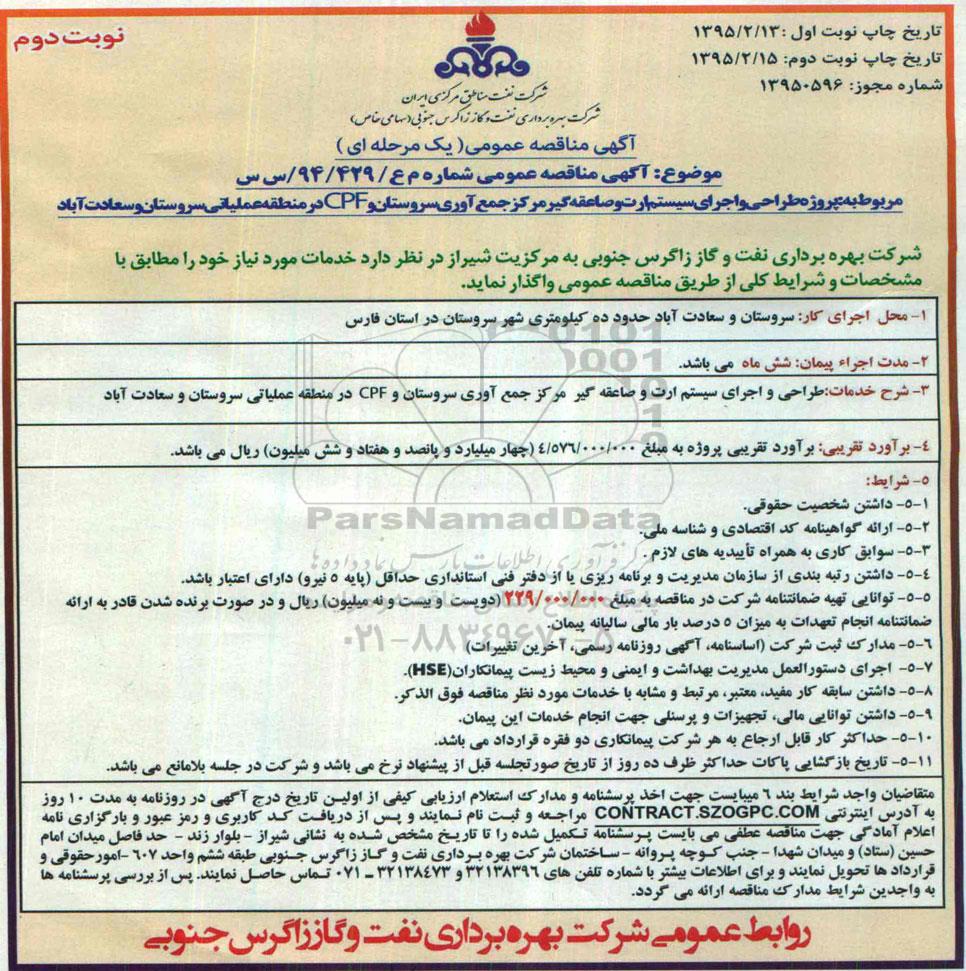 تاریخ چاپ نوبت اول :۱۳۹۵/۲/۱۳
تاریخ چاپ نوبت دوم: ۱۳۹۵/۲/۱۵
شماره مجوز: ۱۳۹۵۰۵۹۶
نوبت دوم
شرکت نفت مناطق مرکزی ایران
شرکت بهره برداری نفت و گاز زاگرس جنوبی (سهامی خاص)
آگهی مناقصه عمومی( یک مرحله ای )
موضوع: آگهی مناقصه عمومی شماره م ع/ ۹۴/۴۲۹/س س
مربوط به: پروژه طراحی و اجرای سیستم ارت و صاعقه گیر مرکز جمع آوری سروستان و CPF در منطقه عملیاتی سروستان و سعادت آباد
شرکت بهره برداری نفت و گاز زاگرس جنوبی به مرکزیت شیراز در نظر دارد خدمات مورد نیاز خود را مطابق با
مشخصات و شرایط کلی از طریق مناقصه عمومی واگذار نماید.
۱- محل اجرای کار: سروستان و سعادت آباد حدود ده کیلومتری شهر سروستان در استان فارس
۲- مدت اجراء پیمان: شش ماه می باشد.
۳- شرح خدمات:طراحی و اجرای سیستم ارت و صاعقه گیر مرکز جمع آوری سروستان و CPF در منطقه عملیاتی سروستان و سعادت آباد
۴- برآورد تقریبی: برآورد تقریبی پروژه به مبلغ ۴/۵۷۶/۰۰۰/۰۰۰ (چهار میلیارد و پانصد و هفتاد و شش میلیون) ریال می باشد.
۵- شرایط:
۵-۱- داشتن شخصیت حقوقی.
۵-۲- ارائه گواهینامه کد اقتصادی و شناسه ملی.
۵-۳- سوابق کاری به همراه تأییدیه های لازم.
۵-۴- داشتن رتبه بندی از سازمان مدیریت و برنامه ریزی یا از دفتر فنی استانداری حداقل (پایه ۵ نیرو) دارای اعتبار باشد.
۵-۵- توانایی تهیه ضمانتنامه شرکت در مناقصه به مبلغ ۲۲۹/۰۰۰/۰۰۰ (دویست و بیست و نه میلیون) ریال و در صورت برنده شدن قادر به ارائه
ضمانتنامه انجام تعهدات به میزان ۵ درصد بار مالی سالیانه پیمان.
۵-۶- مدارک ثبت شرکت (اساسنامه، آگهی روزنامه رسمی، آخرین تغییرات)
۵-۷- اجرای دستورالعمل مدیریت بهداشت و ایمنی و محیط زیست پیمانکاران(HSE).
۵-۸- داشتن سابقه کار مفید، معتبر، مرتبط و مشابه با خدمات مورد نظر مناقصه فوق الذکر.
۵-۹- داشتن توانایی مالی، تجهیزات و پرسنلی جهت انجام خدمات این پیمان.
۵-۱۰- حداکثر کار قابل ارجاع به هر شرکت پیمانکاری دو فقره قرارداد می باشد.
۵-۱۱- تاریخ بازگشایی پاکات حداکثر ظرف ده روز از تاریخ صورتجلسه قبل از پیشنهاد نرخ می باشد و شرکت در جلسه بلامانع می باشد.
ParsNamadData
مرکز فرآوری اطلاعات پارس نماد داده ها
۰۲۱-۸۸۳۴۹۶۷۰-۵
متقاضیان واجد شرایط بند ۶ میبایست جهت اخذ پرسشنامه و مدارک استعلام ارزیابی کیفی از اولین تاریخ درج آگهی در روزنامه به مدت ۱۰ روز
به آدرس اینترنتی CONTRACT.SZOGPC.COM مراجعه و ثبت نام نمایند و پس از دریافت کد کاربری و رمز عبور و بارگزاری نامه
اعلام آمادگی جهت مناقصه عطفی می بایست پرسشنامه تکمیل شده را تا تاریخ مشخص شده به نشانی شیراز - بلوار زند - حد فاصل میدان امام
حسین (ستاد) و میدان شهدا - جنب کوچه پروانه - ساختمان شرکت بهره برداری نفت و گاز زاگرس جنوبی طبقه ششم واحد ۶۰۷ -امورحقوقی و
قرارداد ها تحویل نمایند و برای اطلاعات بیشتر با شماره تلفن های ۳۲۱۳۸۳۹۶ و ۳۲۱۳۸۴۷۳ - ۰۷۱ تماس حاصل نمایند. پس از بررسی پرسشنامه ها
به واجدین شرایط مدارک مناقصه ارائه می گردد.
روابط عمومی شرکت بهره برداری نفت و گاز زاگرس جنوبی